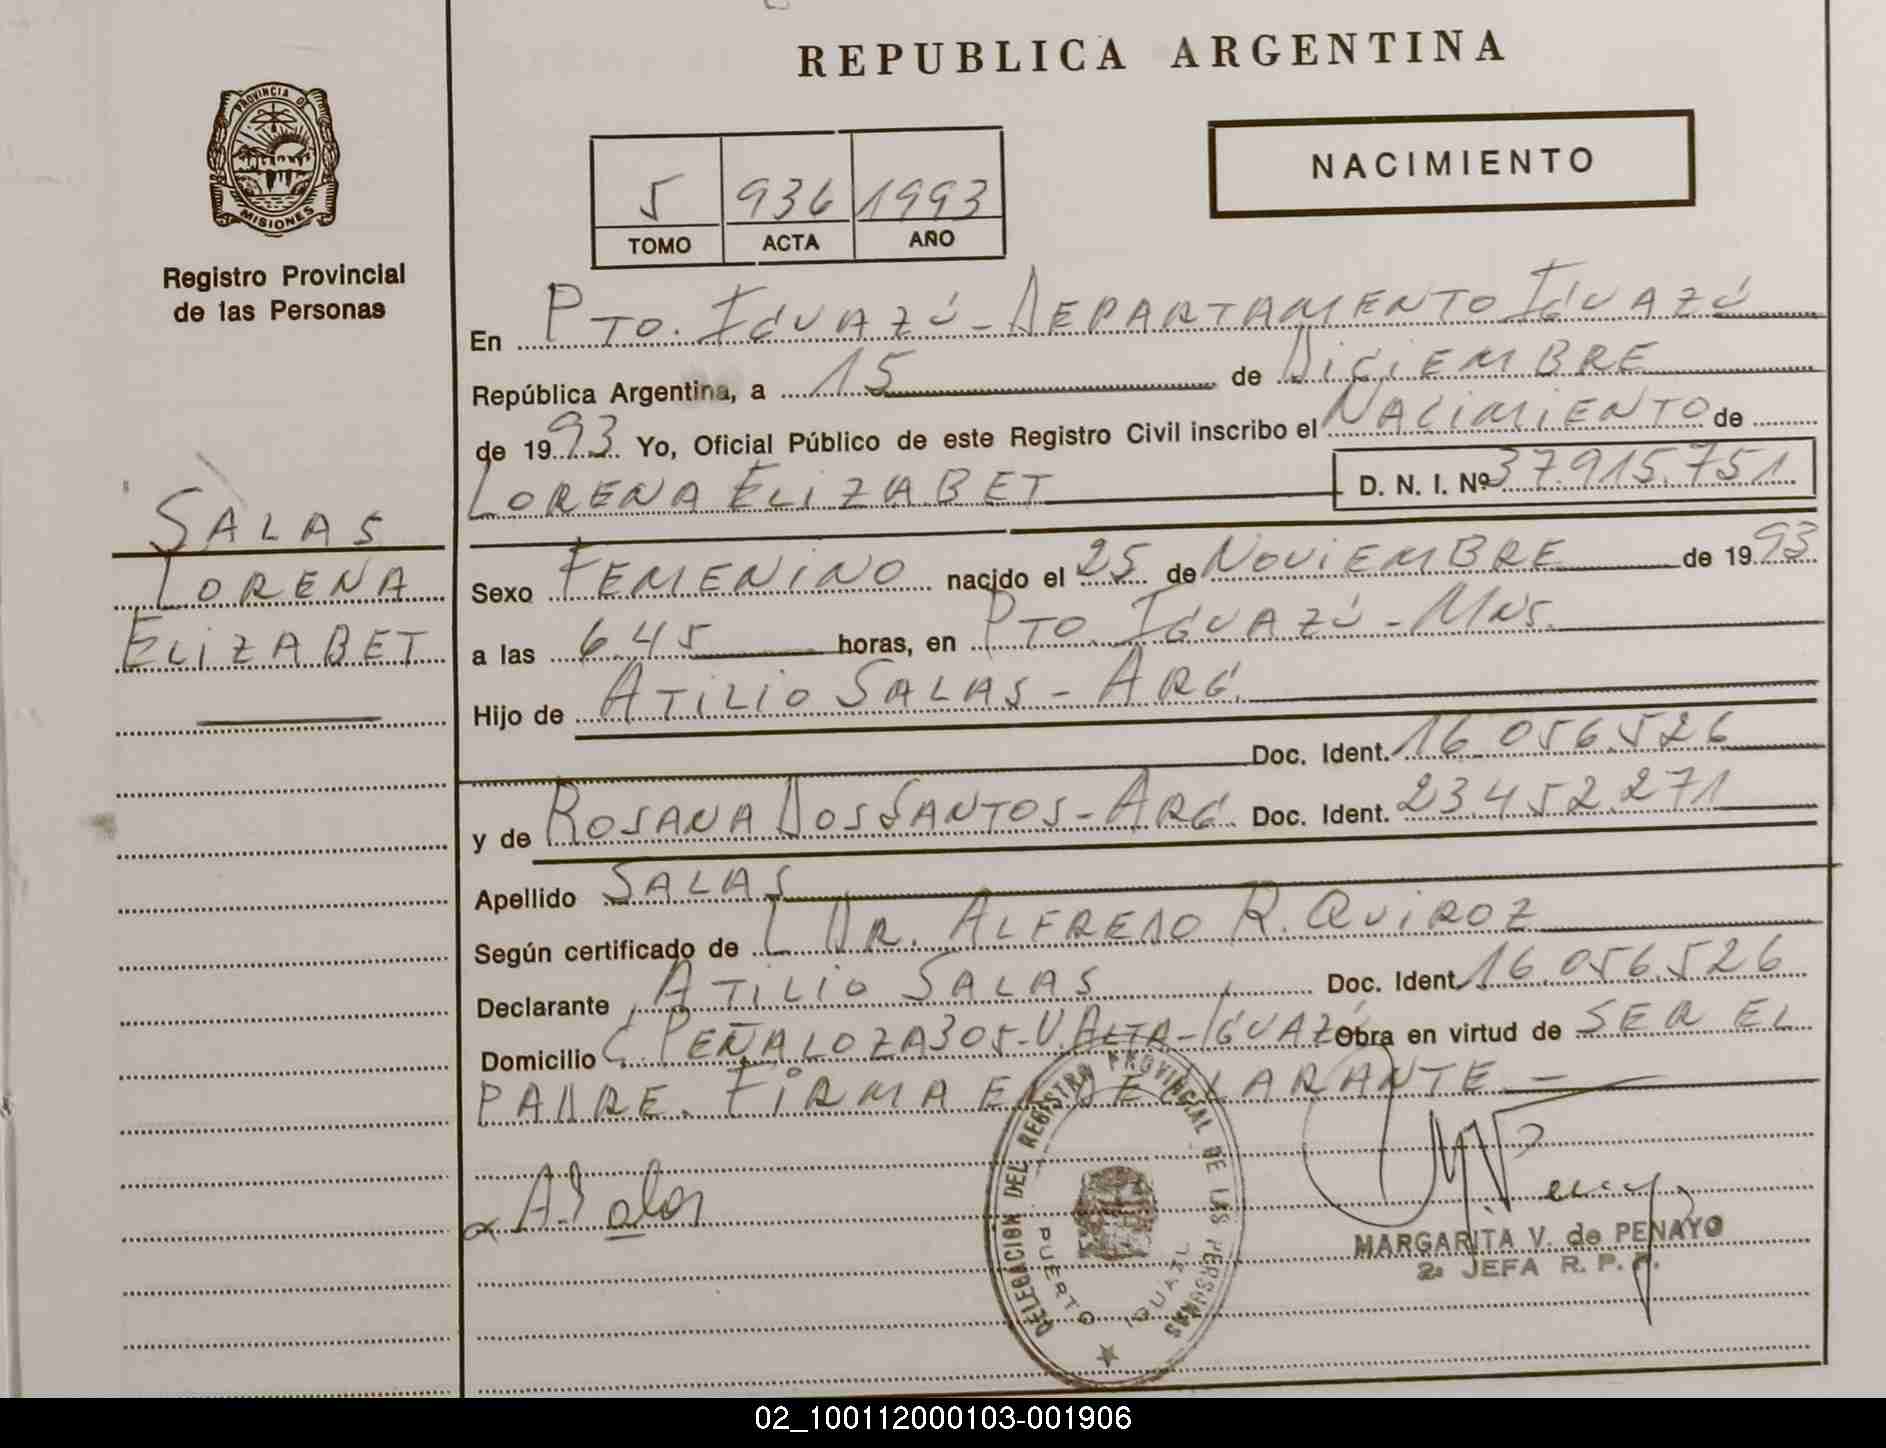 REPUBLICA ARGENTINA
PROVINCIA DE
MISIONES
Registro Provincial
de las Personas
NACIMIENTO
5 936 1993
TOMO ACTA AÑO
En PTO. IGUAZÚ - DEPARTAMENTO IGUAZÚ
República Argentina, a 15 de DICIEMBRE
de 1993 Yo, Oficial Público de este Registro Civil inscribo el NACIMIENTO de
LORENA ELIZABET D. N. I. Nº 37.915.751
SALAS
LORENA
ELIZABET
Sexo FEMENINO nacido el 25 de NOVIEMBRE de 1993
a las 6.45 horas, en PTO. IGUAZÚ - MNS.
Hijo de ATILIO SALAS - ARG.
Doc. Ident. 16.056.526
y de ROSANA DOS SANTOS - ARG. Doc. Ident. 23.452.271
Apellido SALAS
Según certificado de L DR. ALFREDO R. QUIROZ
Declarante ATILIO SALAS Doc. Ident. 16.056.526
Domicilio C. PEÑALOZA 305 - V. ALTA - IGUAZÚ Obra en virtud de SER EL
PADRE. FIRMA EL DECLARANTE. -
A. Salas
DELEGACION DEL REGISTRO PROVINCIAL DE LAS PERSONAS
PUERTO IGUAZU
MARGARITA V. de PENAYO
2ª JEFA R. P. P.
02_100112000103-001906